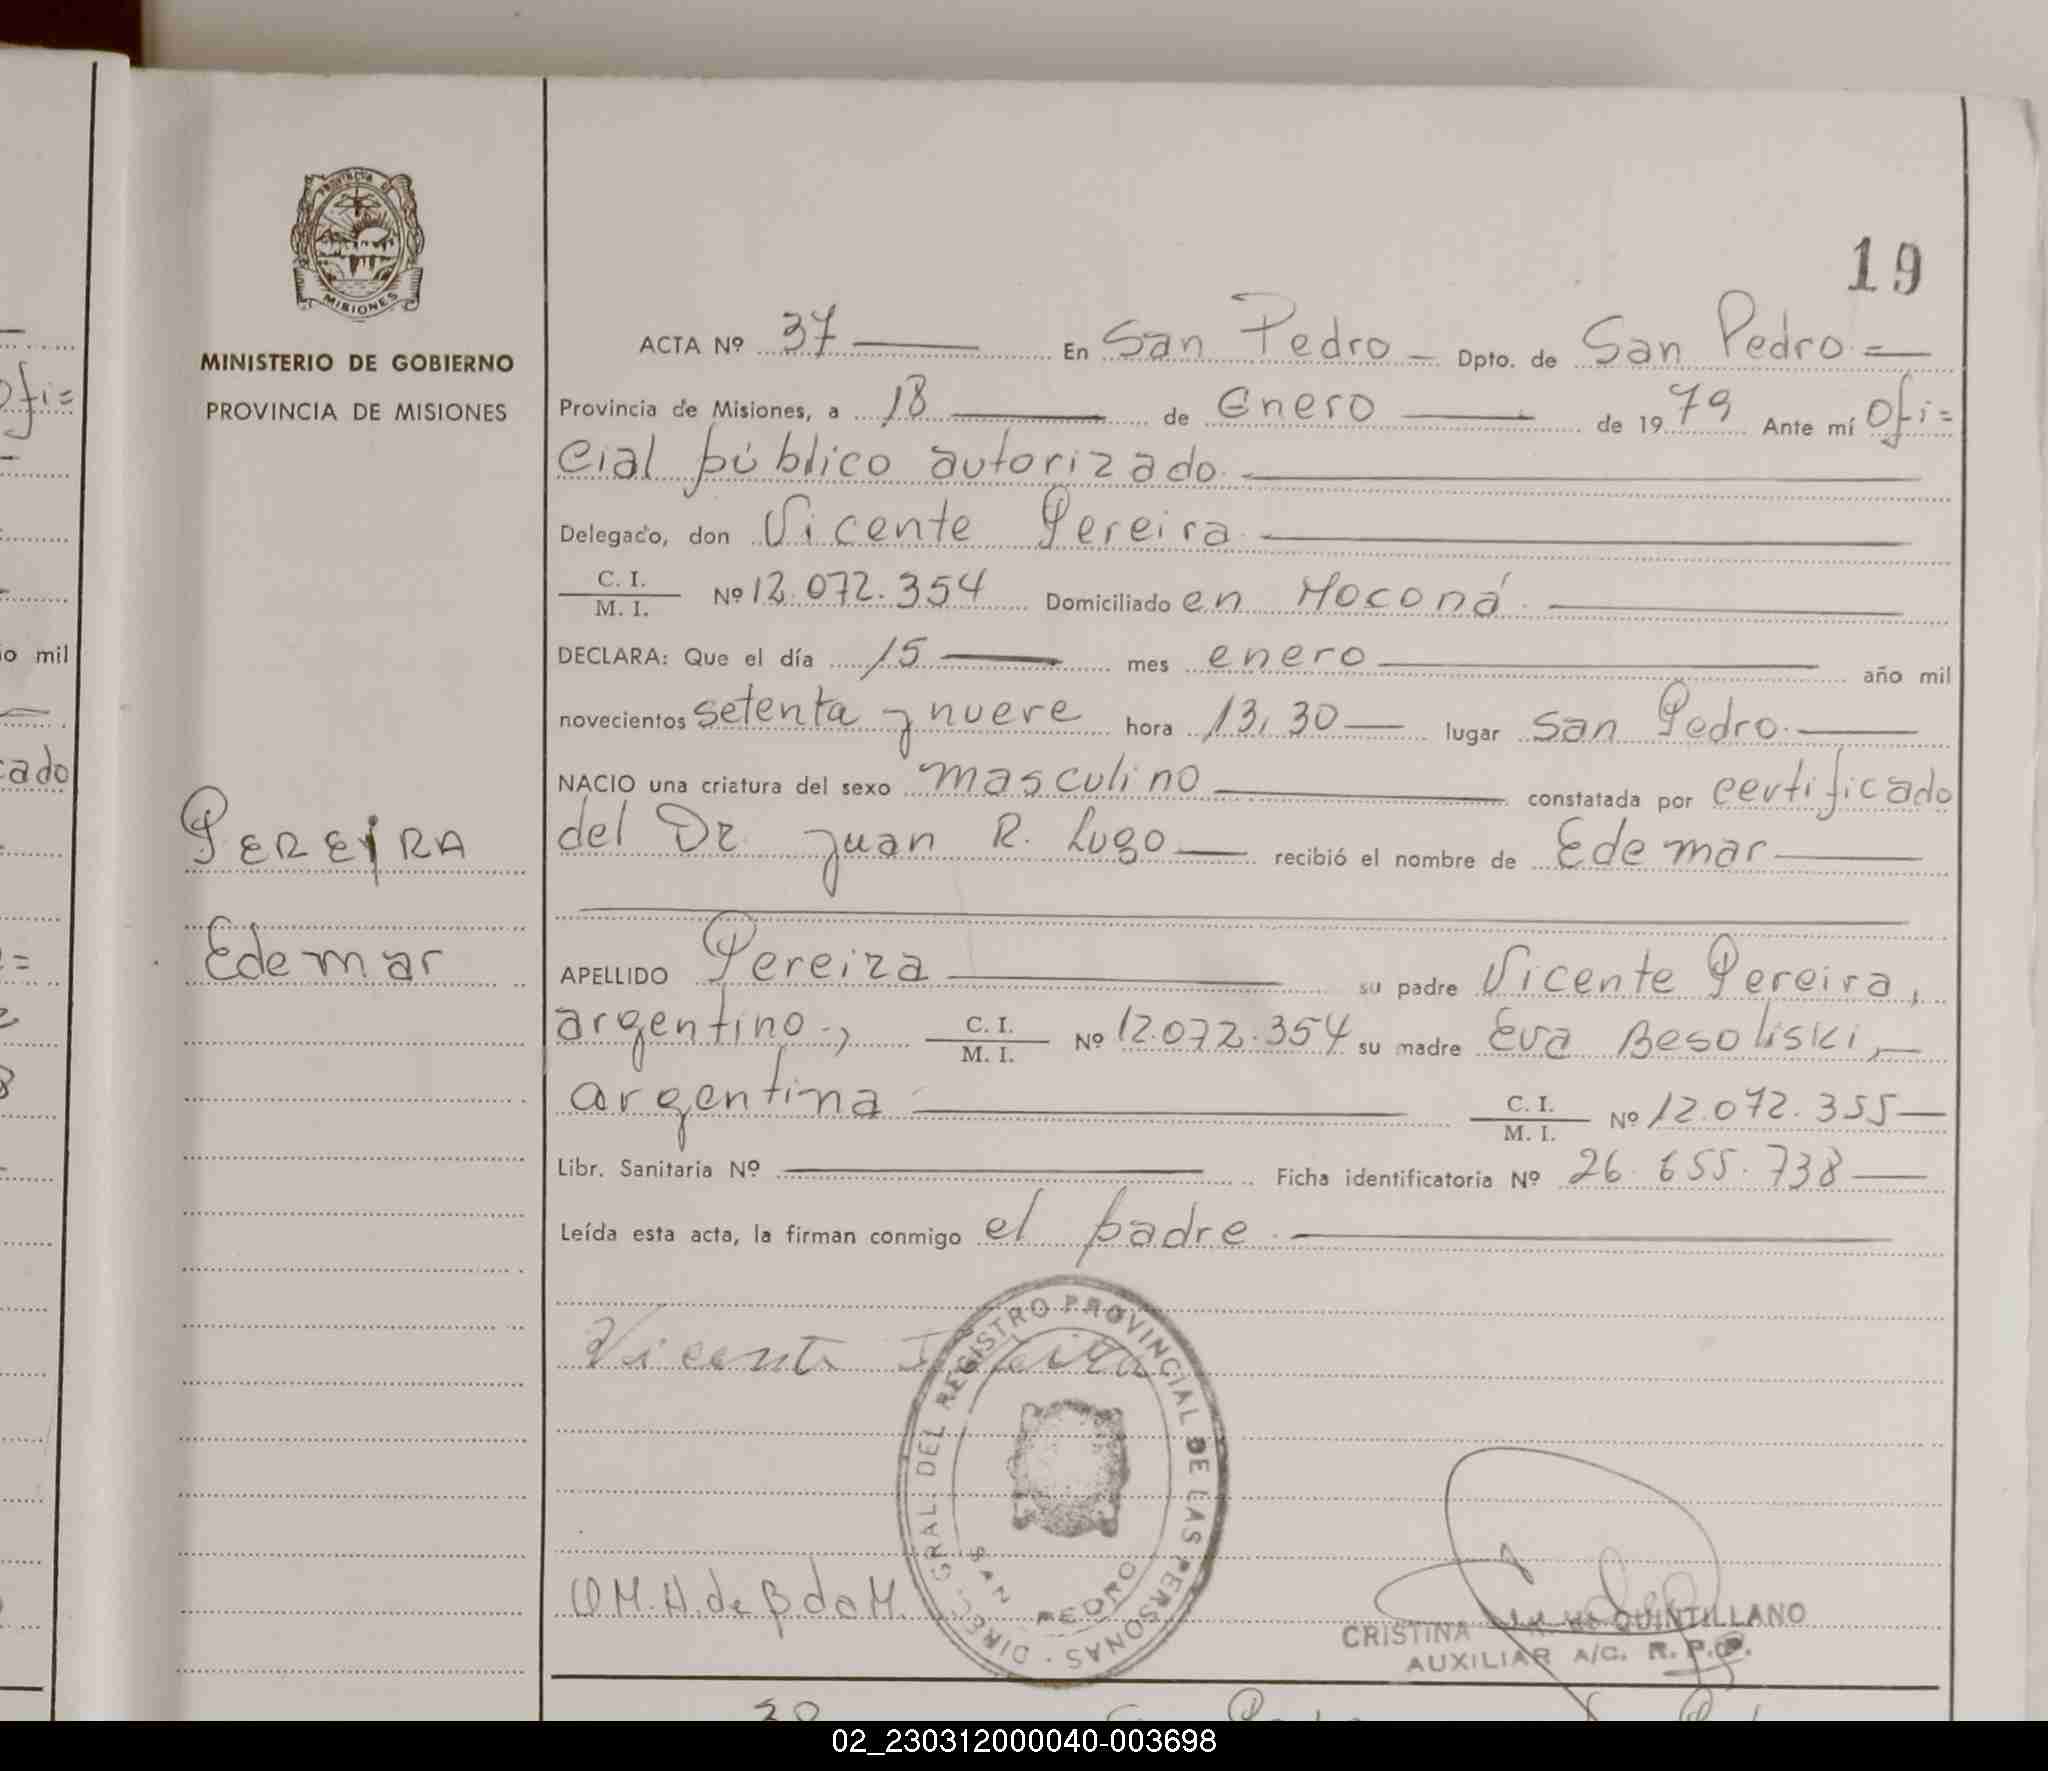 19
MINISTERIO DE GOBIERNO
PROVINCIA DE MISIONES
PROVINCIA DE
MISIONES
ACTA Nº 37 En San Pedro - Dpto. de San Pedro =
Provincia de Misiones, a 18 de Enero de 1979 Ante mí Ofi=
cial público autorizado
Delegado, don Vicente Pereira
C. I.
M. I. Nº 12.072.354 Domiciliado en Moconá
DECLARA: Que el día 15 mes enero año mil
novecientos setenta y nueve hora 13,30 lugar San Pedro
NACIO una criatura del sexo masculino constatada por certificado
del Dr. Juan R. Lugo recibió el nombre de Edemar
PEREIRA
Edemar
APELLIDO Pereira su padre Vicente Pereira,
argentino., C. I. M. I. Nº 12.072.354 su madre Eva Besoliski,
argentina C. I. M. I. Nº 12.072.355
Libr. Sanitaria Nº Ficha identificatoria Nº 26.655.738
Leída esta acta, la firman conmigo el padre
Vicente
DIREC. GRAL. DEL REGISTRO PROVINCIAL DE LAS PERSONAS
SAN PEDRO
CRISTINA QUINTILLANO
AUXILIAR A/C. R. P.
ofi=
año mil
cado
San Pedro
02_230312000040-003698